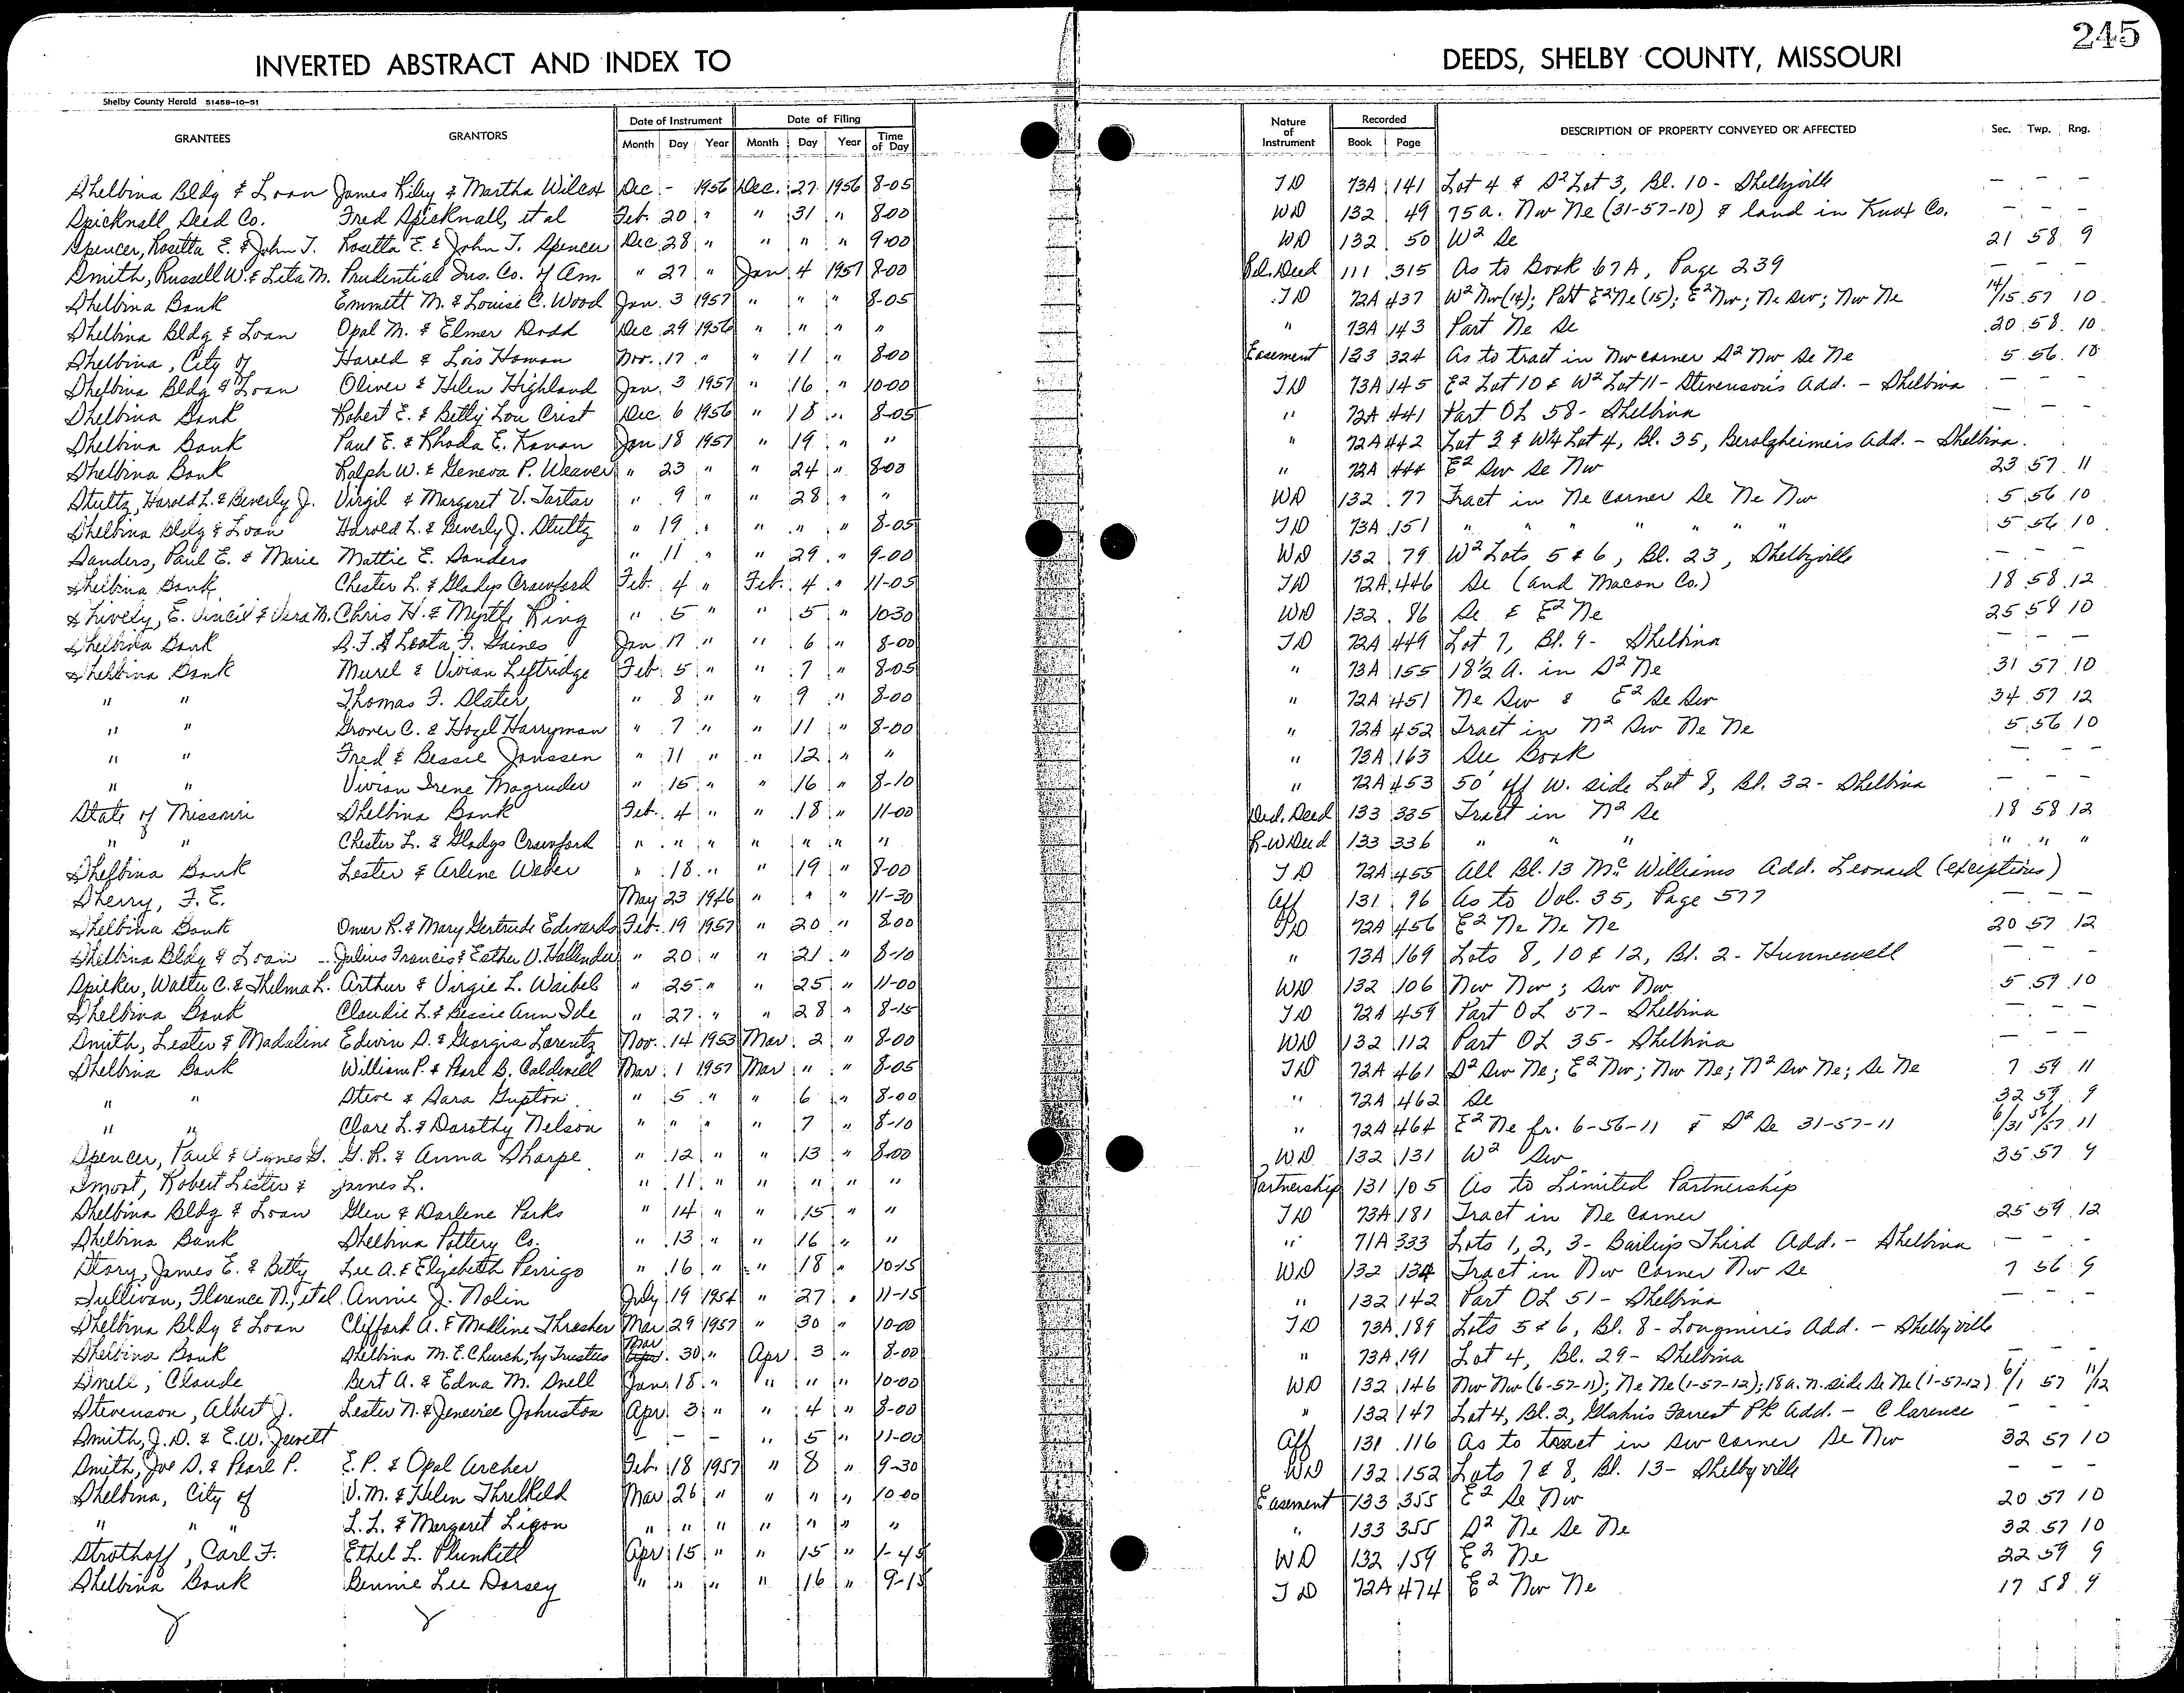 245
INVERTED ABSTRACT AND INDEX TO DEEDS, SHELBY COUNTY, MISSOURI
Shelby County Herald 51458-10-51
GRANTEES GRANTORS Date of Instrument Date of Filing Nature of Instrument Recorded DESCRIPTION OF PROPERTY CONVEYED OR AFFECTED Sec. Twp. Rng.
Month Day Year Month Day Year Time of Day Book Page
Shelbina Bldg & Loan James Riley & Martha Wilcox Dec - 1956 Dec. 27 1956 8-05 TD 73A 141 Lot 4 & S2 Lot 3, Bl. 10 - Shelbyville - - -
Spicknall Seed Co. Fred Spicknall, et al Feb. 20 " " 31 " 8-00 WD 132 49 75a. Nw Ne (31-57-10) & land in Knox Co. - - -
Spencer, Rosetta E. & John T. Rosetta E. & John T. Spencer Dec 28 " " " " 9-00 WD 132 50 W2 Se 21 58 9
Smith, Russell W. & Leta M. Prudential Ins. Co. of Am. " 27 " Jan 4 1957 8-00 Rel. Deed 111 315 As to Book 67A, Page 239 - - -
Shelbina Bank Emmett M. & Louise C. Wood Jan. 3 1957 " " " 8-05 TD 72A 437 W2 Nw (14); Part E2 Ne (15); E2 Nw; Ne Sw; Nw Ne 14/15 57 10
Shelbina Bldg & Loan Opal M. & Elmer Dodd Dec 29 1956 " " " " " 73A 143 Part Ne Se 20 58 10
Shelbina, City of Harold & Lois Homan Nov. 17 " " 11 " 8-00 Easement 133 324 As to tract in Nw corner S2 Nw Se Ne 5 56 10
Shelbina Bldg & Loan Oliver & Helen Highland Jan. 3 1957 " 16 " 10-00 TD 73A 145 E2 Lot 10 & W2 Lot 11 - Stevenson's Add. - Shelbina - - -
Shelbina Bank Robert E. & Betty Lou Crist Dec 6 1956 " 18 " 8-05 " 72A 441 Part OL 58 - Shelbina - - -
Shelbina Bank Paul E. & Rhoda E. Kanan Jan 18 1957 " 19 " " " 72A 442 Lot 3 & W¼ Lot 4, Bl. 35, Berolzheimer's Add. - Shelbina
Shelbina Bank Ralph W. & Geneva P. Weaver " 23 " " 24 " 8-00 " 72A 444 E2 Sw Se Nw 23 57 11
Stultz, Harold L. & Beverly J. Virgil & Margaret V. Tarter " 9 " " 28 " " WD 132 77 Tract in Ne corner Se Ne Nw 5 56 10
Shelbina Bldg & Loan Harold L. & Beverly J. Stultz " 19 " " " " 8-05 TD 73A 151 " " " " " " " 5 56 10
Sanders, Paul E. & Marie Mattie E. Sanders " 11 " " 29 " 9-00 WD 132 79 W2 Lots 5 & 6, Bl. 23, Shelbyville - - -
Shelbina Bank Chester L. & Gladys Crawford Feb. 4 " Feb. 4 " 11-05 TD 72A 446 Se (and Macon Co.) 18 58 12
Shively, E. Vincil & Vera M. Chris H. & Myrtle King " 5 " " 5 " 10-30 WD 132 86 Se & E2 Ne 25 58 10
Shelbina Bank S.F. & Leata F. Gaines Jan 17 " " 6 " 8-00 TD 72A 449 Lot 7, Bl. 9 - Shelbina - - -
Shelbina Bank Murel & Vivian Leftridge Feb 5 " " 7 " 8-05 " 73A 155 18½ A. in S2 Ne 31 57 10
" " Thomas F. Slater " 8 " " 9 " 8-00 " 72A 451 Ne Sw & E2 Se Sw 34 57 12
" " Grover C. & Hazel Harryman " 7 " " 11 " 8-00 " 72A 452 Tract in N2 Sw Ne Ne 5 56 10
" " Fred & Bessie Janssen " 11 " " 12 " " " 73A 163 See Book - - -
" " Vivian Irene Magruder " 15 " " 16 " 8-10 " 72A 453 50' off W. side Lot 8, Bl. 32 - Shelbina - - -
State of Missouri Shelbina Bank Feb. 4 " " 18 " 11-00 Ded. Deed 133 335 Tract in N2 Se 18 58 12
" " Chester L. & Gladys Crawford " " " " " " " R-W Deed 133 336 " " " " " "
Shelbina Bank Lester & Arlene Weber " 18 " " 19 " 8-00 TD 72A 455 All Bl. 13 McWilliams Add. Leonard (exceptions)
Sherry, F. E. May 23 1946 " " " 11-30 Aff 131 96 As to Vol. 35, Page 577 - - -
Shelbina Bank Omer R. & Mary Gertrude Edwards Feb. 19 1957 " 20 " 8-00 TD 72A 456 E2 Ne Ne Ne 20 57 12
Shelbina Bldg & Loan Julius Francis & Esther V. Hollender " 20 " " 21 " 8-10 " 73A 169 Lots 8, 10 & 12, Bl. 2 - Hunnewell - - -
Spilker, Walter C. & Thelma L. Arthur & Virgie L. Waibel " 25 " " 25 " 11-00 WD 132 106 Nw Nw; Sw Nw 5 59 10
Shelbina Bank Claudie L. & Bessie Ann Ide " 27 " " 28 " 8-15 TD 72A 459 Part OL 57 - Shelbina - - -
Smith, Lester & Madaline Edwin S. & Georgia Lorentz Nov. 14 1953 Mar. 2 " 8-00 WD 132 112 Part OL 35 - Shelbina - - -
Shelbina Bank William P. & Pearl B. Caldwell Mar 1 1957 Mar " " 8-05 TD 72A 461 S2 Sw Ne; E2 Nw; Nw Ne; N2 Sw Ne; Se Ne 7 59 11
" " Steve & Sara Gupton " 5 " " 6 " 8-00 " 72A 462 Se 32 59 9
" " Clare L. & Dorothy Nelson " " " " 7 " 8-10 " 72A 464 E2 Ne fr. 6-56-11 & S2 Se 31-57-11 6/31 56/57 11
Spencer, Paul & Agnes G. G. R. & Anna Sharpe " 12 " " 13 " 8-00 WD 132 131 W2 Sw 35 57 9
Smoot, Robert Lester & James L. " 11 " " " " " Partnership 131 105 As to Limited Partnership
Shelbina Bldg & Loan Glen & Darlene Parks " 14 " " 15 " " TD 73A 181 Tract in Ne Corner 25 59 12
Shelbina Bank Shelbina Pottery Co. " 13 " " 16 " " " 71A 333 Lots 1, 2, 3 - Bailey's Third Add. - Shelbina - - -
Story, James E. & Betty Lee A. & Elizabeth Perrigo " 16 " " 18 " 10-15 WD 132 134 Tract in Nw Corner Nw Se 7 56 9
Sullivan, Florence N., et al Annie J. Nolin July 19 1954 " 27 " 11-15 " 132 142 Part OL 51 - Shelbina - - -
Shelbina Bldg & Loan Clifford A. & Madline Thrasher Mar 29 1957 " 30 " 10-00 TD 73A 189 Lots 5 & 6, Bl. 8 - Longmire's Add. - Shelbyville
Shelbina Bank Shelbina M. E. Church, by Trustees Mar 30 " Apr 3 " 8-00 " 73A 191 Lot 4, Bl. 29 - Shelbina - - -
Snell, Claude Bert A. & Edna M. Snell Jan 18 " " " " 10-00 WD 132 146 Nw Nw (6-57-11); Ne Ne (1-57-12); 18a. n. side Se Ne (1-57-12) 6/1 57 11/12
Stevenson, Albert J. Lester N. & Jeneviee Johnston Apr 3 " " 4 " 8-00 " 132 147 Lot 4, Bl. 2, Glahn's Forrest Pk Add. - Clarence - - -
Smith, J. D. & E. W. Jewett - - - " 5 " 11-00 Aff 131 116 As to tract in Sw corner Se Nw 32 57 10
Smith, Joe S. & Pearl P. E. P. & Opal Archer Feb. 18 1957 " 8 " 9-30 WD 132 152 Lots 7 & 8, Bl. 13 - Shelbyville - - -
Shelbina, City of V. M. & Helen Threlkeld Mar 26 " " " " 10-00 Easement 133 355 E2 Se Nw 20 57 10
" " " L. L. & Margaret Ligon " " " " " " " " 133 355 S2 Ne Se Ne 32 57 10
Strothoff, Carl F. Ethel L. Plunkett Apr 15 " " 15 " 1-45 WD 132 159 E2 Ne 22 59 9
Shelbina Bank Bennie Lee Dorsey " " " " 16 " 9-15 TD 72A 474 E2 Nw Ne 17 58 9